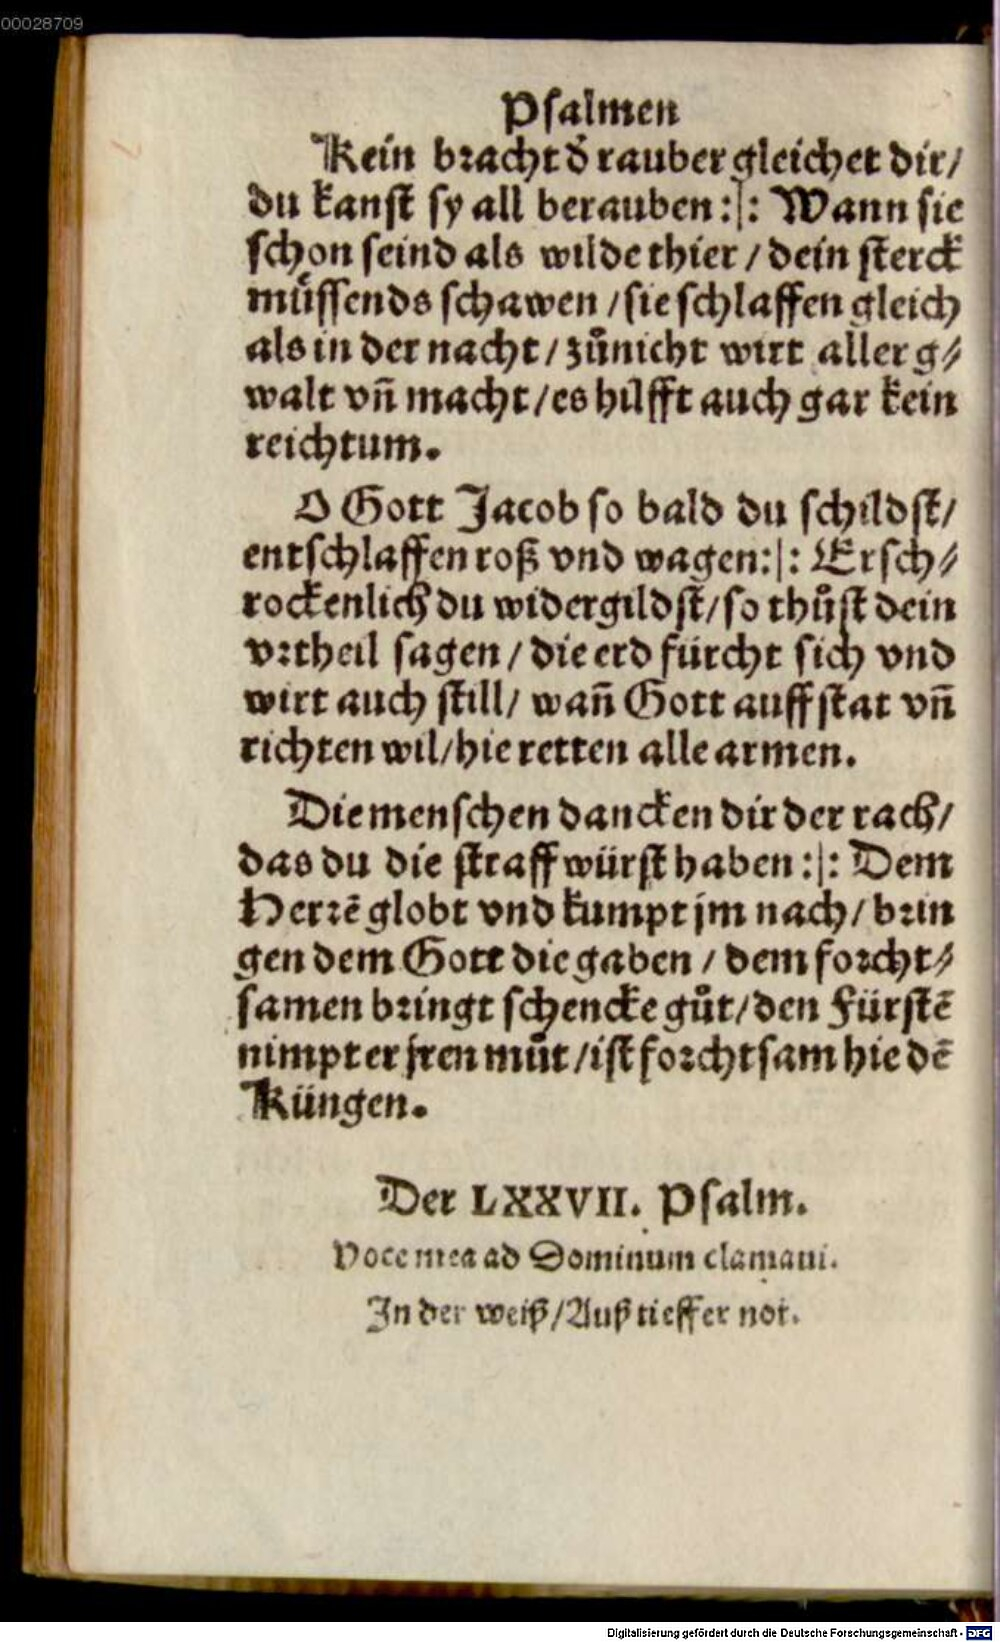 00028709
Psalmen
Kein bracht d̄ rauber gleichet dir/
du kanst sy all berauben :|: Wann sie
schon seind als wilde thier / dein sterck
muͤssends schawen / sie schlaffen gleich
als in der nacht / zuͦnicht wirt aller g⸗
walt vn̄ macht / es hilfft auch gar kein
reichtum.
O Gott Jacob so bald du schildst /
entschlaffen roß vnd wagen :|: Ersch⸗
rockenlich du widergildst / so thuͦst dein
vrtheil sagen / die erd fürcht sich vnd
wirt auch still / wan̄ Gott auff stat vn̄
richten wil / hie retten alle armen.
Die menschen dancken dir der rach /
das du die straff würst haben :|: Dem
Herrē globt vnd kumpt jm nach / brin
gen dem Gott die gaben / dem forcht⸗
samen bringt schencke guͦt / den Fürstē
nimpt er jren muͦt / ist forchtsam hie dē
Küngen.
Der LXXVII. Psalm.
Voce mea ad Dominum clamaui.
In der weiß / Auß tieffer not.
Digitalisierung gefördert durch die Deutsche Forschungsgemeinschaft - DFG